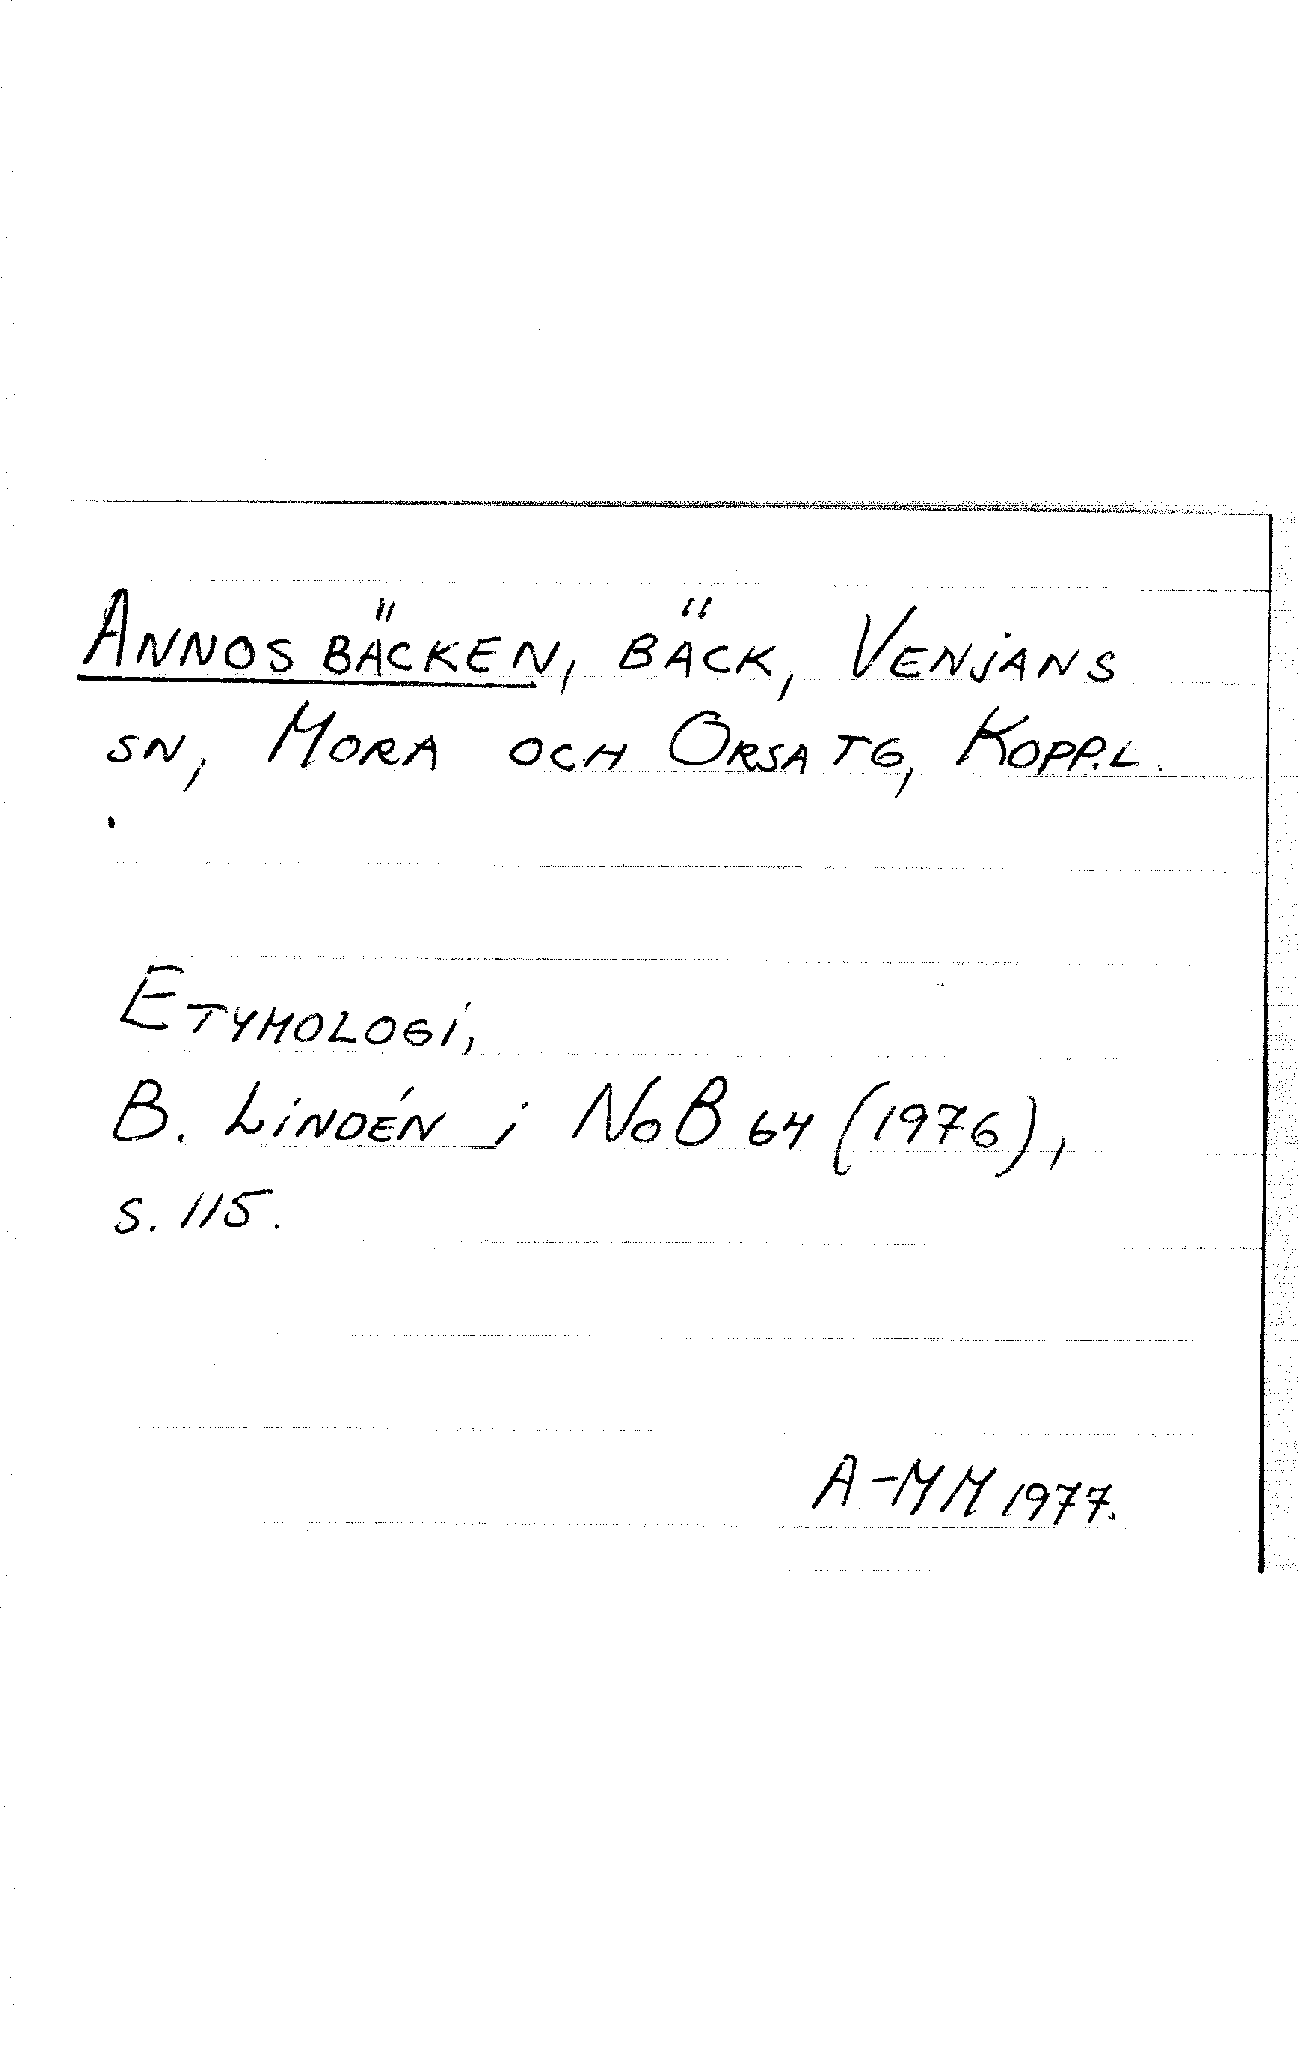 ANNOSBÄCKEN, BÄCK, VENJANS
SN, MORA OCH ORSA TG, KOPP.L.
ETYMOLOGI,
B. LINDÉN i NoB 64 (1976),
S. 115.
A-MM 1977.